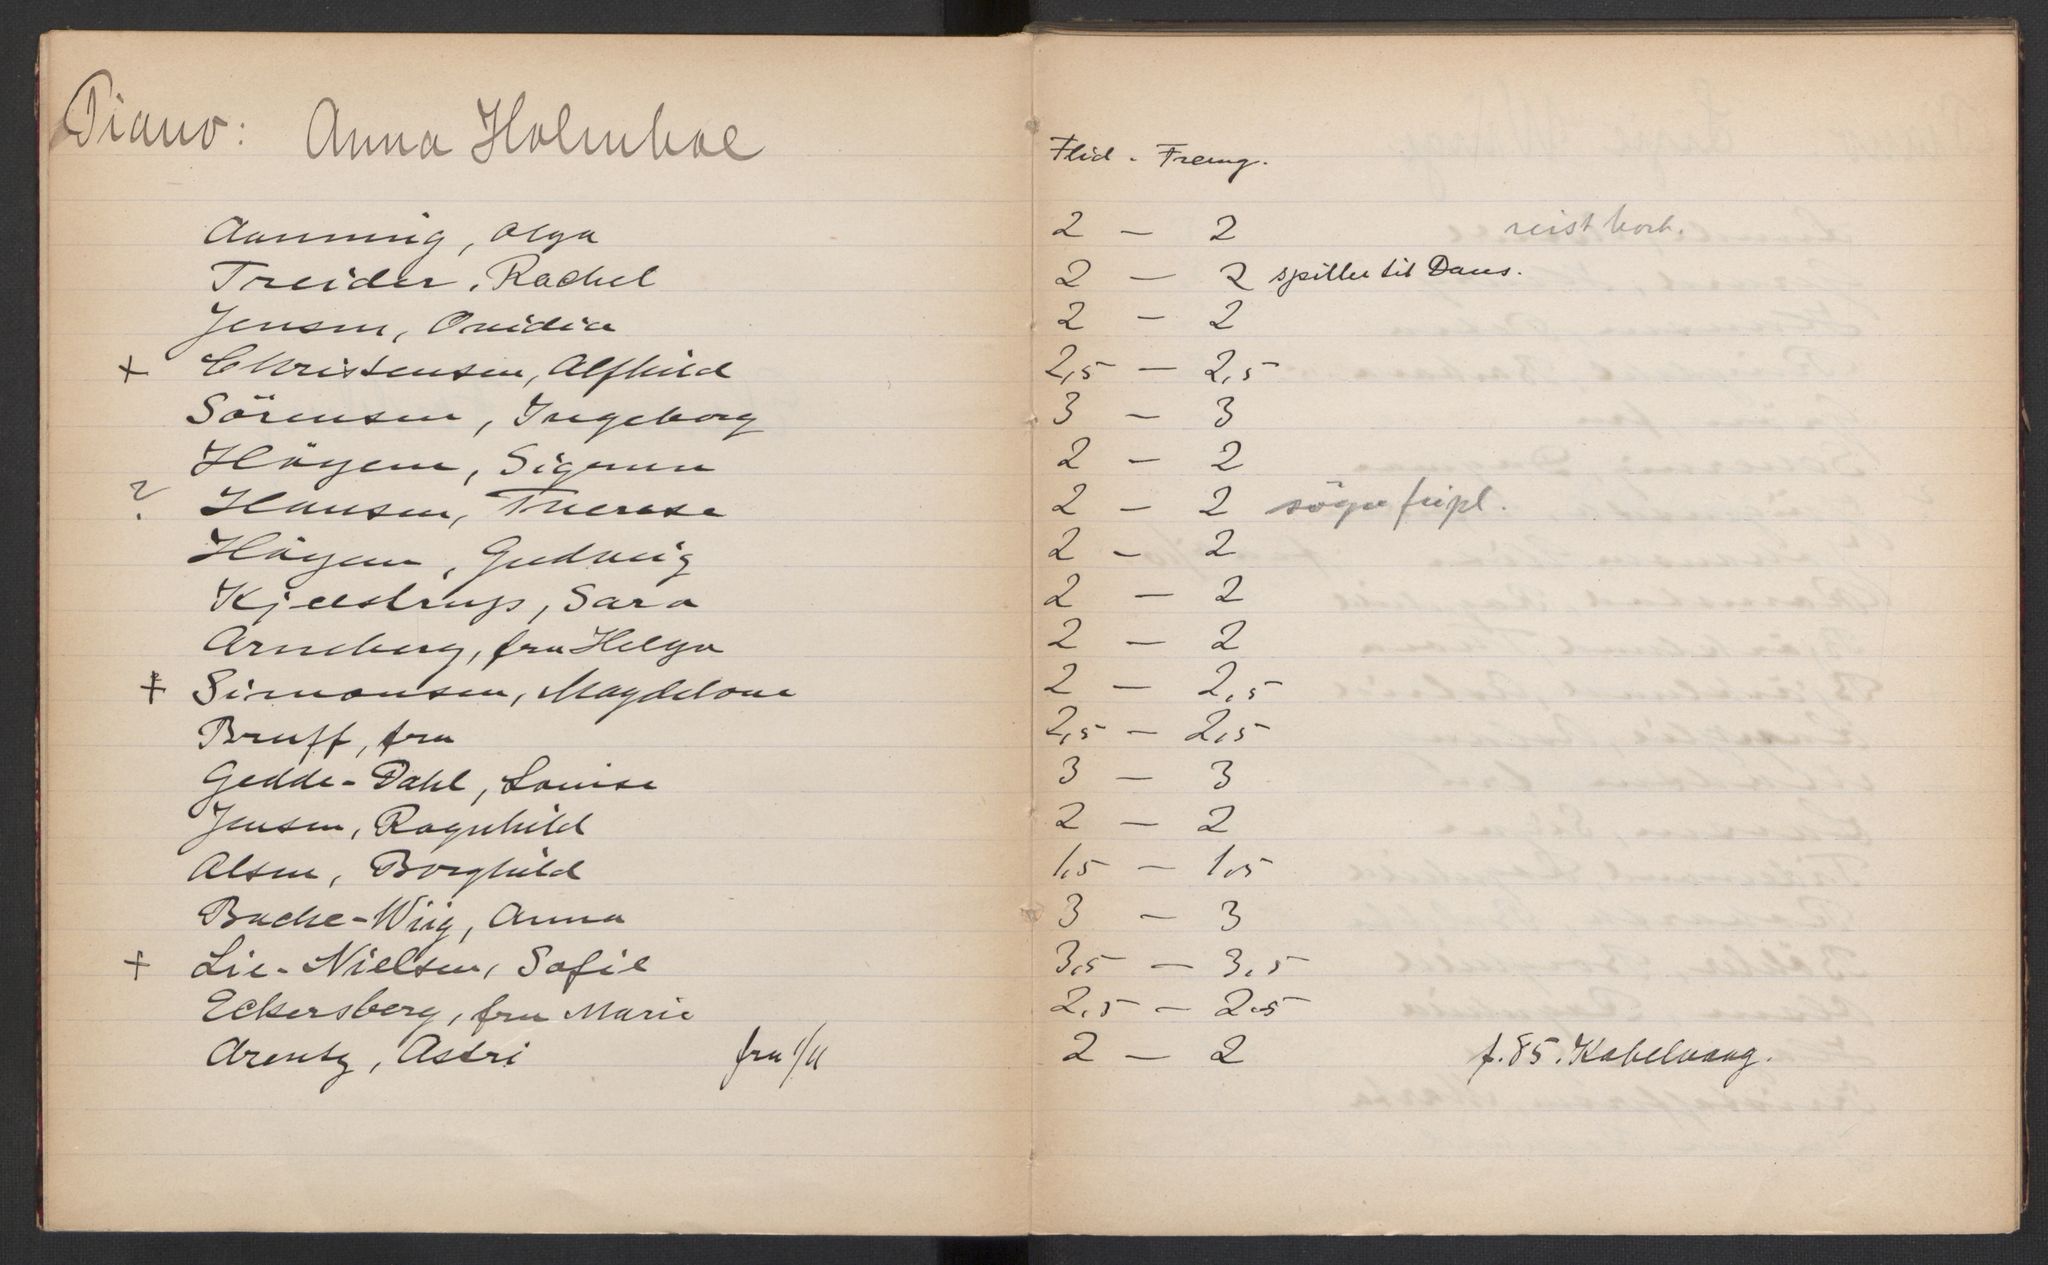 Piano: Anna Holmboe
Flid. - Fremg.
Aanning, Olga 2 — 2 reist bort.
Treider, Rachel 2 — 2 spiller til Dans.
Jensen, Ovidia 2 — 2
+ Christensen, Alfhild 2,5 — 2,5
Sörensen, Ingeborg 3 — 3
Höyem, Sigrun 2 — 2
? Hansen, Therese 2 — 2 søger fripl.
Höyem, Gudveig 2 — 2
Kjelstrup, Sara 2 — 2
Arneberg, fru Helga 2 — 2
+ Simonsen, Magdelone 2 — 2,5
Bruff, fru 2,5 — 2,5
Gedde-Dahl, Louise 3 — 3
Jensen, Ragnhild 2 — 2
Olsen, Borghild 1,5 — 1,5
Backe-Wiig, Anna 3 — 3
+ Lie-Nielsen, Sofie 3,5 — 3,5
Eckersberg, fru Marie 2,5 — 2,5
Arentz, Astri fra 1/11 2 — 2 f. 85. Kabelvaag.